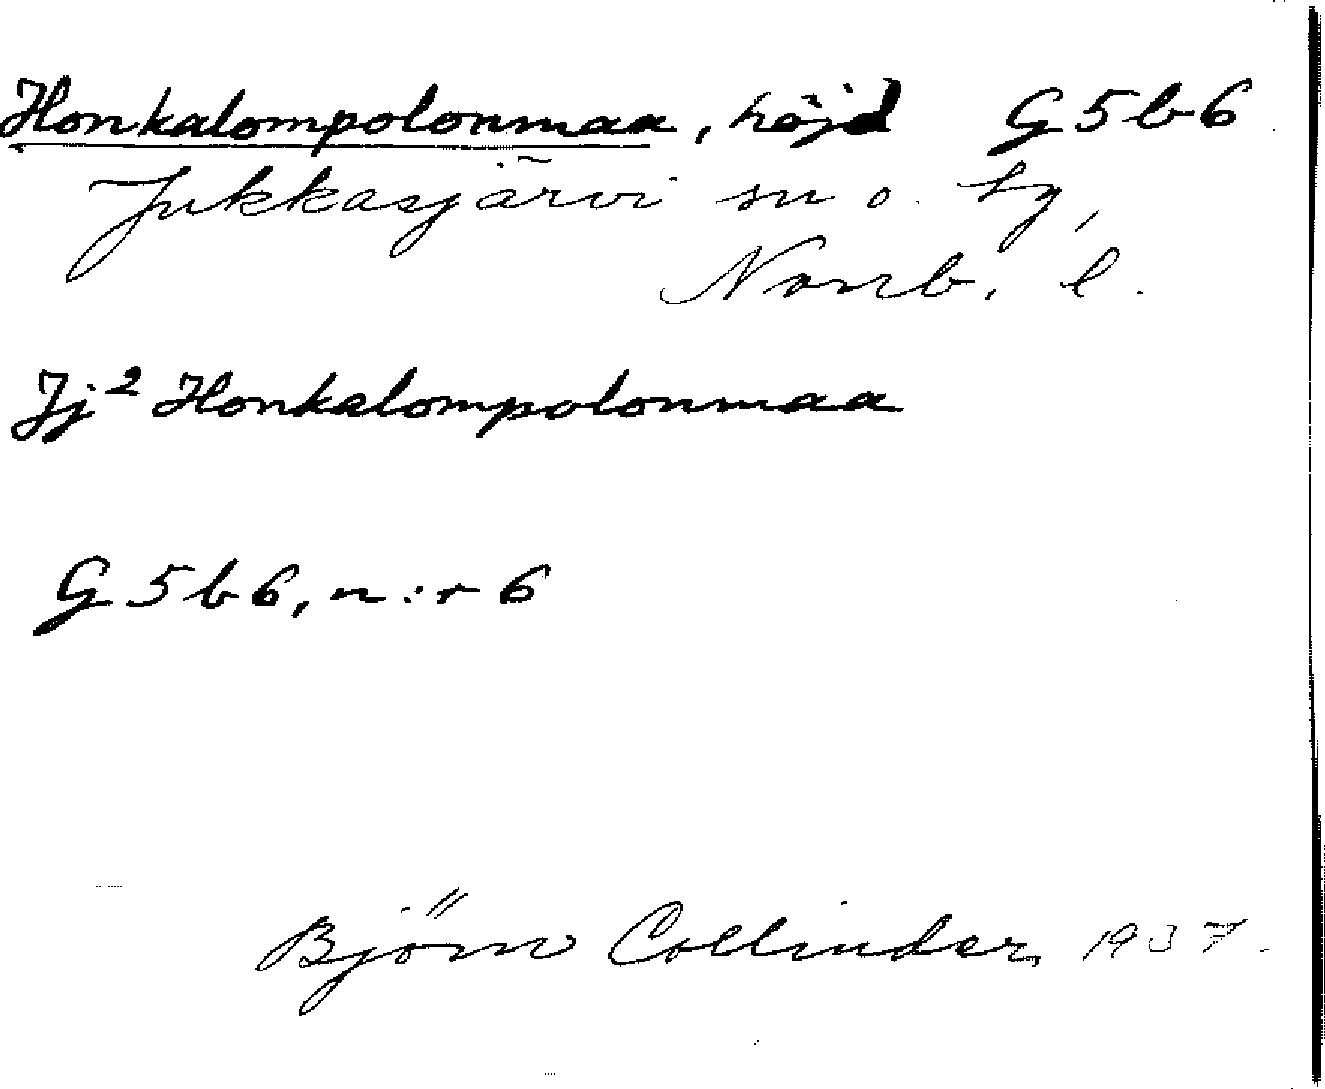 Honkalompolonmaa, höjd G5b6
Jukkasjärvi sn o. tg,
Norrb. l.
Jj² Honkalompolonmaa
G5b6, n:r 6
Björn Collinder, 1937.